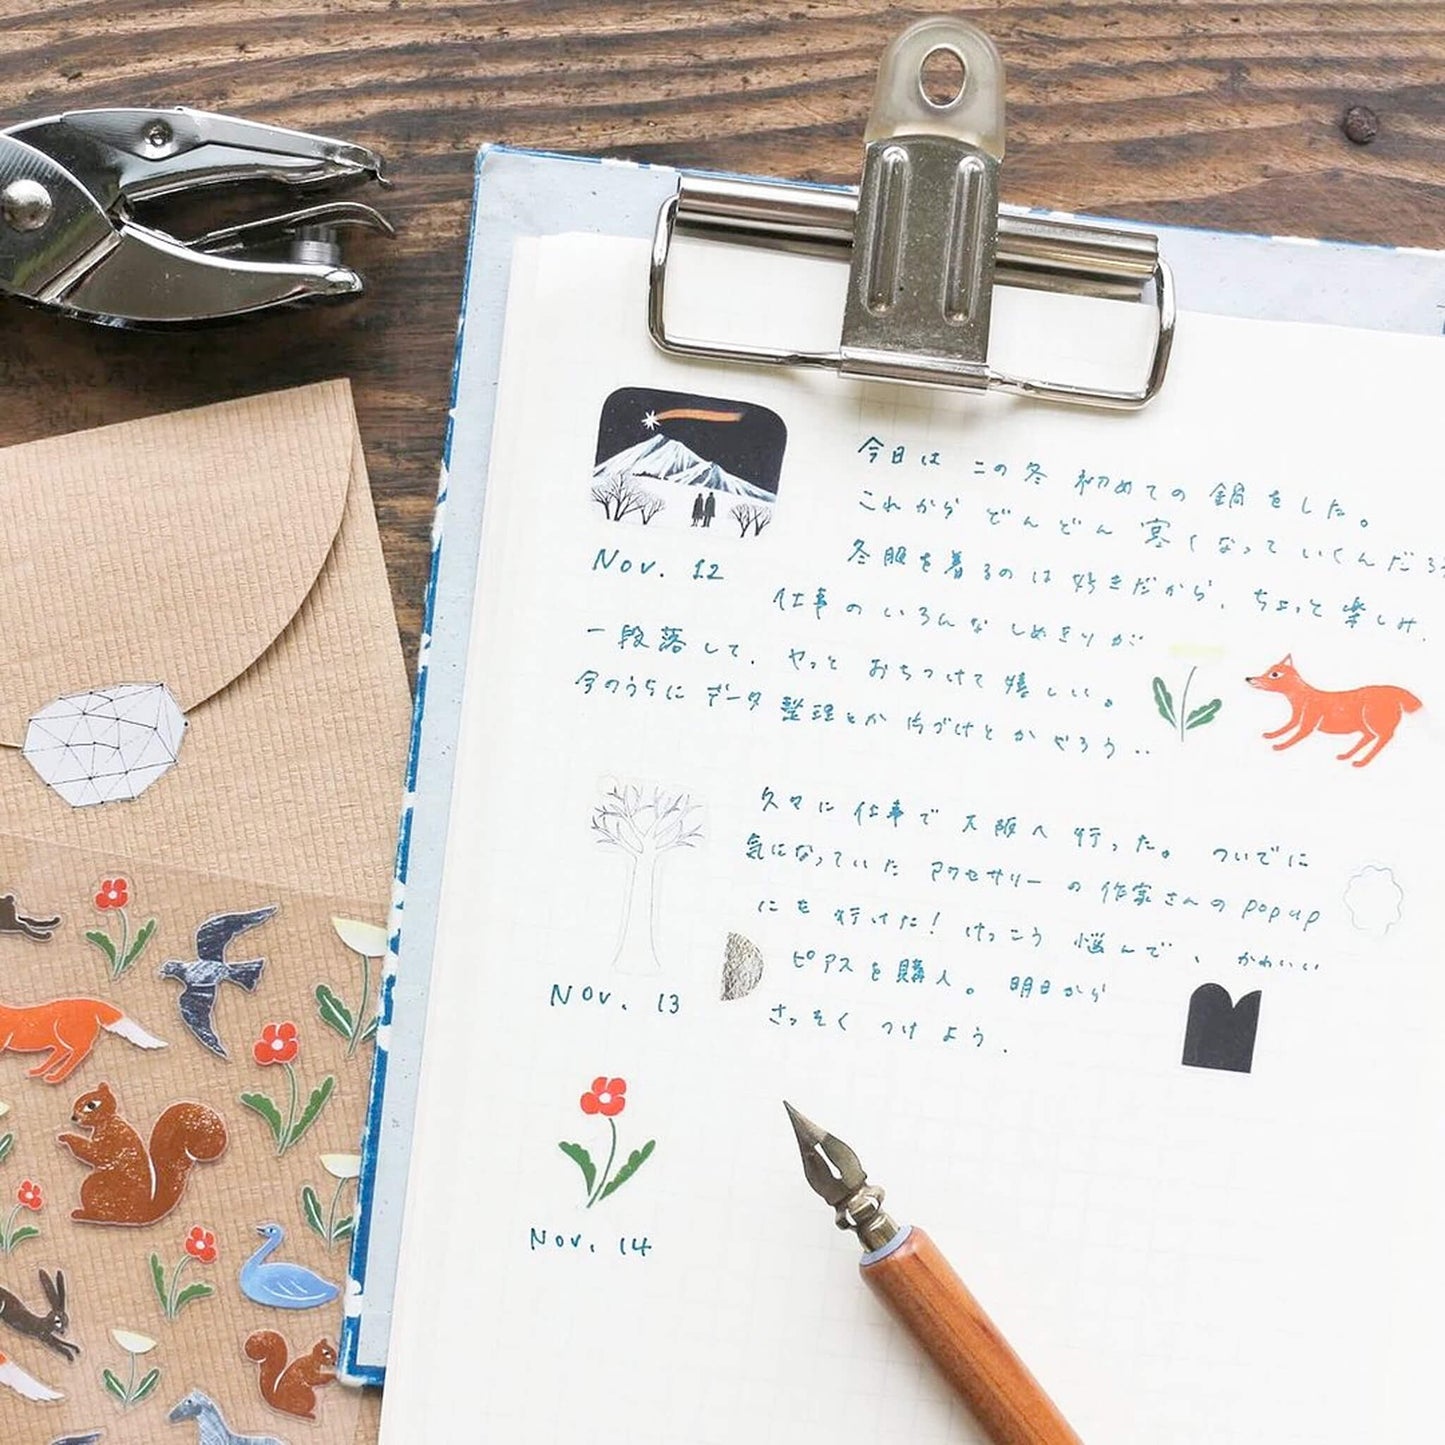 今日は この冬 初めての 鍋をした。
これから どんどん 寒くなって いくんだろ
冬服を着るのは 好きだから、ちょっと 楽しみ.
Nov. 12
仕事の いろんな しめきりが
一段落して、やっと おちつけて 嬉しい。
今のうちに データ 整理とか 片づけとか やろう‥
久々に 仕事で 大阪へ 行った。 ついでに
気になっていた アクセサリーの 作家さんの popup
にも 行けた! けっこう 悩んで、かわいい
ピアスを 購入。 明日から
Nov. 13
さっそく つけよう.
Nov. 14